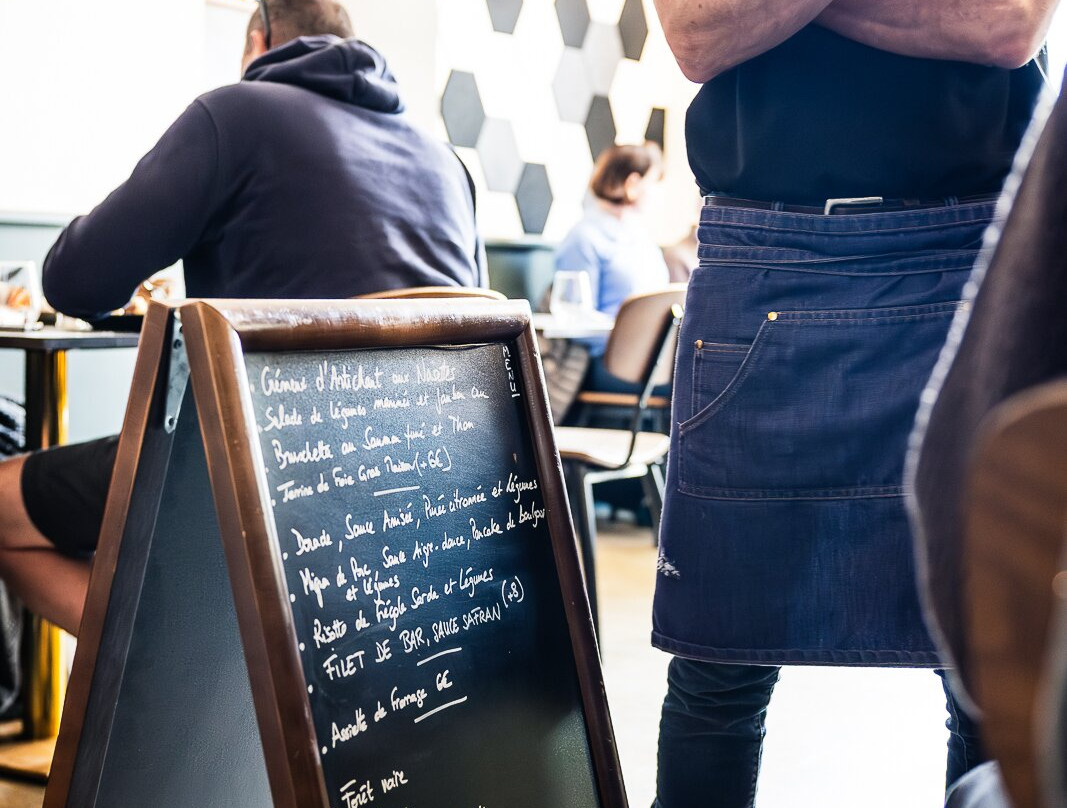 MENU
. Crémeux d'Artichaut aux Noisettes
. Salade de légumes marinés et Jambon cru
. Bruschetta au Saumon fumé et Thon
. Terrine de Foie Gras Maison (+6€)
. Dorade, Sauce Antisé, Purée citronnée et Légumes
. Mignon de Porc, Sauce Aigre-douce, Pancake de boulgour
et Légumes
. Risotto de Frégola Sarda et Légumes
. FILET DE BAR, SAUCE SAFRAN (+8)
. Assiette de Fromage 6€
Forêt noire